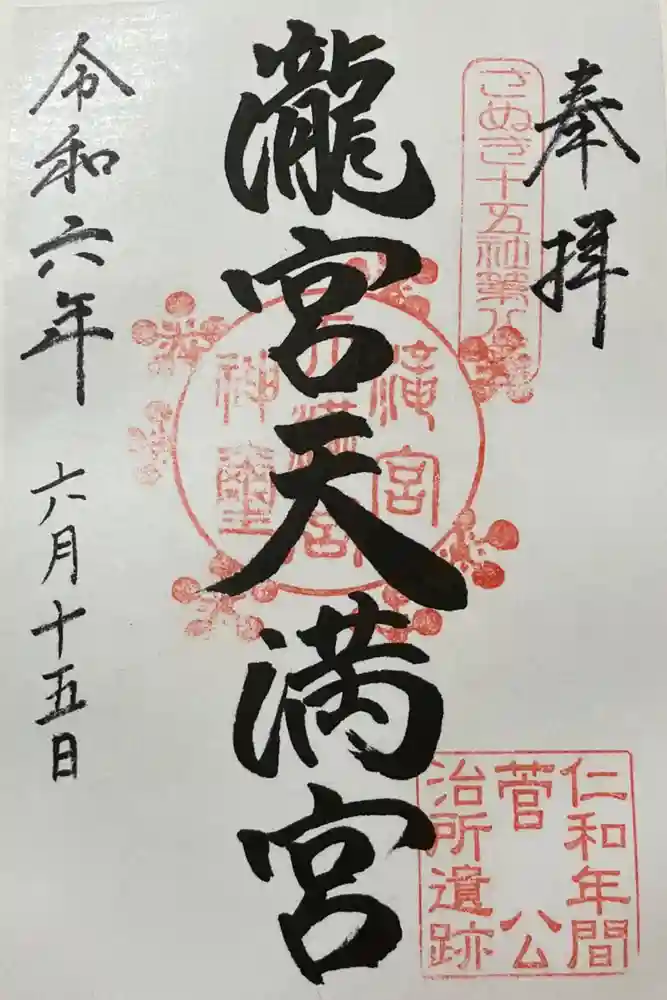 奉拝
さぬき十五社第八
瀧宮天満宮
滝宮
天満宮
神璽
令和六年
六月十五日
仁和年間
菅公
治所遺跡